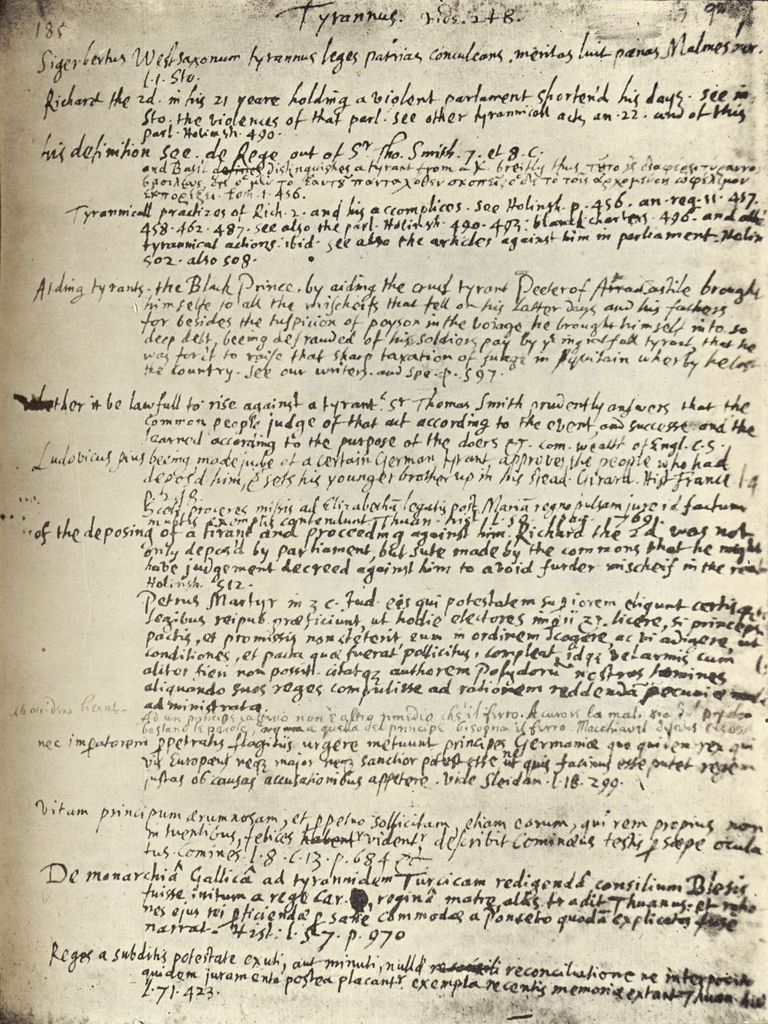 185 Tyrannus. vide. 248.
Sigerbertus Westsaxonum tyrannus leges patrias conculcans, meritas luit pœnas Malmesbur.
l. 1. Sto.
Richard the 2d. in his 21 yeare holding a violent parlament shorten'd his days. see in
Sto. the violences of that parl. see other tyrannicall acts an. 22. and of this
parl. Holinsh. 490.
his definition see. de Rege out of Sr. Tho. Smith. 7. et 8. C.
and Basil distinguishes a tyrant from a K. breifly thus τοῦτο διαφέρει τύραννος
βασιλέως, ὅτι ὁ μὲν τὸ ἑαυτοῦ πανταχόθεν σκοπεῖ, ὁ δὲ τὸ τοῖς ἀρχομένοις ὠφέλιμον
ἐκπορίζει. tom. 1. 456.
Tyrannicall practizes of Rich. 2. and his accomplices. see Holinsh. p. 456. an. reg. 11. 457.
458. 462. 487. see also the parl. Holinsh. 490. 493. blanck charters. 496. and
tyrannical actions. ibid. see also the articles against him in parliament. Holin
502. also 508.
Aiding tyrants. the Black Prince, by aiding the cruel tyrant Peeter of Castile brought
himselfe to all the mischeifs that fell on his latter days and his fathers
for besides the suspicion of poyson in the voiage he brought himself into so
deep debt, beeing defrauded of his soldiers pay by ye ingratfull tyrant, that he
was forc't to raise that sharp taxation of in Aquitain wherby he lost
the country. See our writers. and Spe. p. 597.
Whether it be lawfull to rise against a tyrant? Sr Thomas Smith prudently answers that the
common people judge of that act according to the event, and successe. and the
learned according to the purpose of the doers &c. com. wealth of Engl. c. 5.
Ludovicus pius beeing made judge of a certain German tyrant, approves the people who had
depos'd him, & sets his younger brother up in his stead. Girard. Hist. France l. 4
Scoti proceres missis ad Elizabetham legatis post Mariam regno pulsam jure id factum
exemplis contendunt Thuan. hist. l. 50. pag. 769.
of the deposing of a tirant and proceeding against him. Richard the 2d. was not
only depos'd by parliament, but sute made by the commons that he might
have judgement decreed against him to avoid furder mischeif in the realm
Holinsh. 512.
Petrus Martyr in 3 c. Jud. eis qui potestatem superiorem eligunt certisque
legibus reipub. præficiunt, ut hodie electores imperii &c. licere, si princeps
pactis, et promissis non steterit eum in ordinem cogere, ac vi adigere, ut
conditiones, et pacta quæ fuerat pollicitus, compleat, idque vel armis cum
aliter fieri non possit. citatque authorem Polydorum nostros homines
aliquando suos reges compulisse ad rationem reddendam pecuniæ male
administratæ.
Ad un principe cattivo non è altro rimedio che il ferro. A curare la malattia del popolo
bastano le parole, ma a quella del principe bisogna il ferro. Macchiavel
nec imperatorem perpetratis flagitiis urgere metuunt principes Germaniæ quo quidem rex qui
vis Europæus neque major neque sanctior potest esse, ne quis facinus esse putet regem
justas ob causas accusationibus appetere. vide Sleidan. l. 18. 299.
Vitam principum ærumnosam, et perpetuo sollicitam, etiam eorum, qui rem propius non
intuentibus, felices videntur describit Cominæus testis sæpe ocula
tus. Comines. l. 6. c. 13. p. 684 &c.
De monarchiâ Gallicâ ad tyrannidem Turcicam redigendâ consilium Blesis
fuisse initum a rege Car. 9, reginâ matre, aliis tradit Thuanus: et ratio
nes ejus rei perficiendæ sane commodas a Ponceto quodam explicatas fusè
narrat. Hist. l. 57. p. 970
Reges a subditis potestate exuti, aut minuti, nullâ reconciliatione ne interposito
quidem juramento postea placantur. exempla recentis memoriæ extant. Thuan. hist
l. 71. 423.